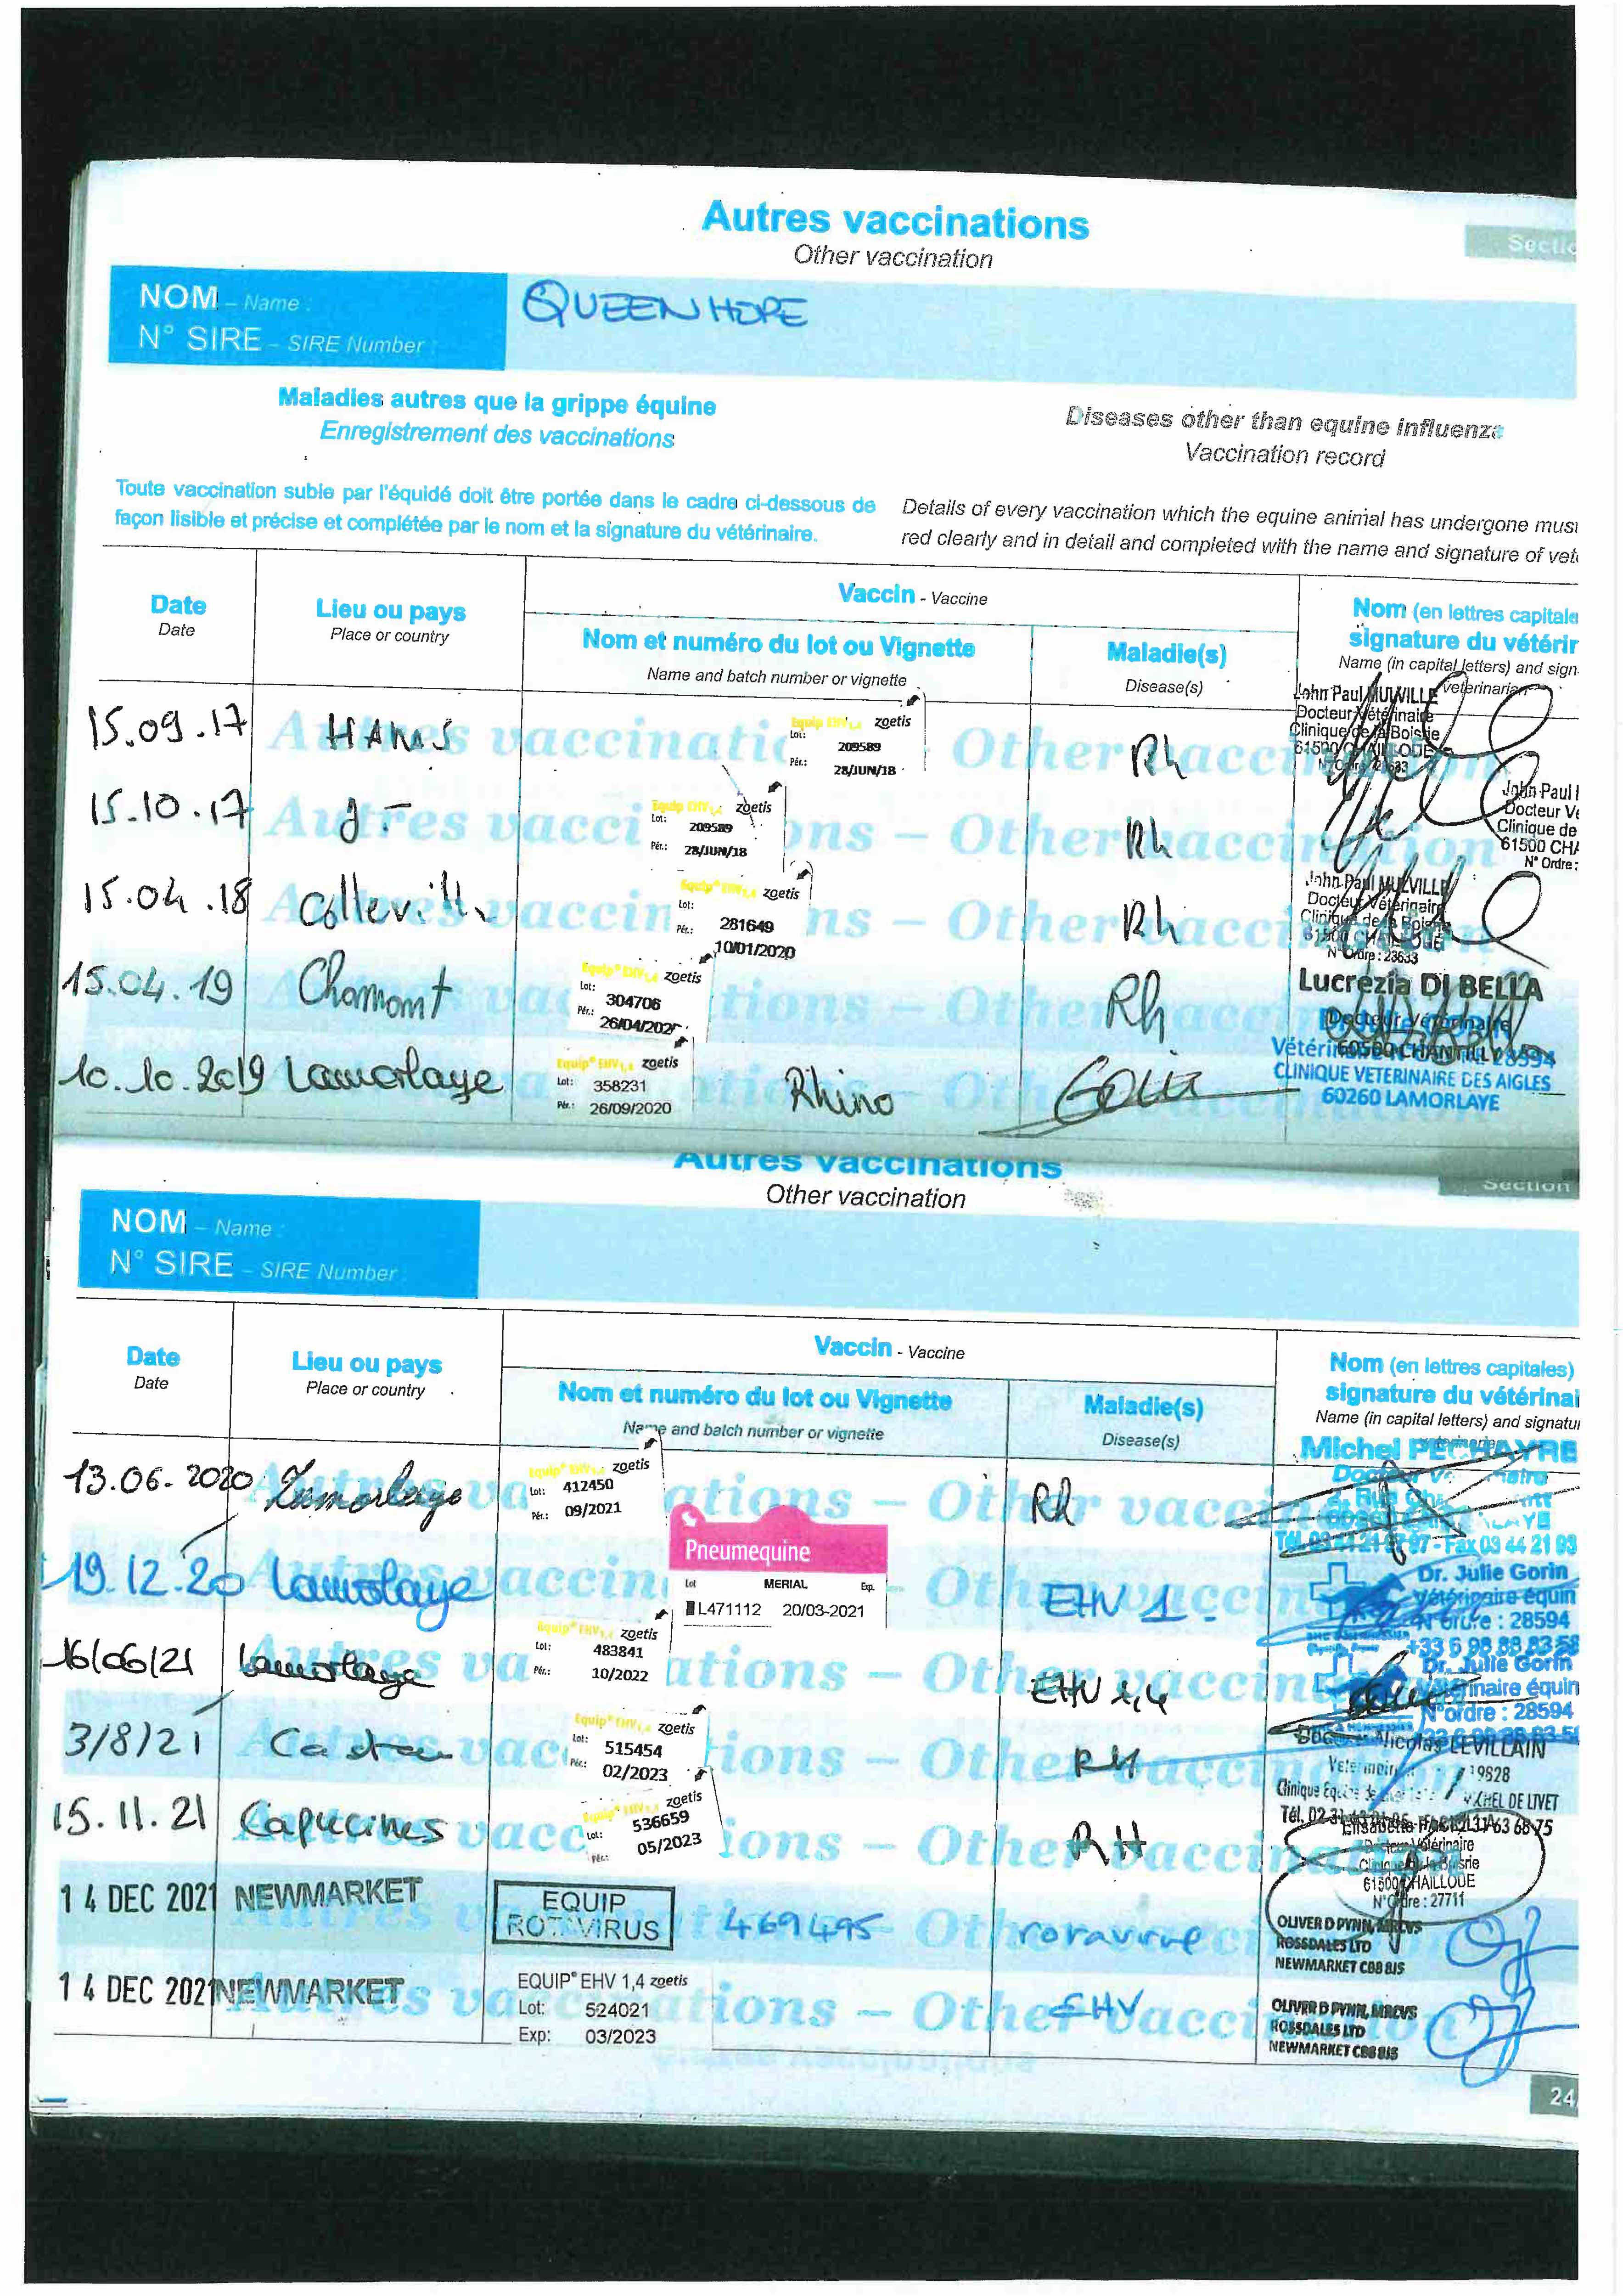 Autres vaccinations
Other vaccination
Sectio
NOM – Name :
QUEENHOPE
N° SIRE – SIRE Number :
Maladies autres que la grippe équine
Enregistrement des vaccinations
Diseases other than equine influenza
Vaccination record
Toute vaccination subie par l'équidé doit être portée dans le cadre ci-dessous de
façon lisible et précise et complétée par le nom et la signature du vétérinaire.
Details of every vaccination which the equine animal has undergone must
red clearly and in detail and completed with the name and signature of vete
Date
Date
Lieu ou pays
Place or country
Vaccin - Vaccine
Nom et numéro du lot ou Vignette
Name and batch number or vignette
Maladie(s)
Disease(s)
Nom (en lettres capitale
signature du vétérir
Name (in capital letters) and sign
veterinarian
15.09.17
Equip EHV1,4 zoetis
Lot: 209589
Pér.: 28/JUN/18
Rh
John Paul MULVILLE
Docteur Vétérinaire
Clinique de la Boisrie
61500 CHAILLOUE
N° Ordre : 23633
15.10.17
Equip EHV1,4 zoetis
Lot: 209589
Pér.: 28/JUN/18
Rh
John Paul
Docteur Vé
Clinique de
61500 CHA
N° Ordre :
15.04.18
Colleville
Equip® EHV1,4 zoetis
Lot: 281649
Pér.: 10/01/2020
Rh
John Paul MULVILLE
Docteur Vétérinaire
Clinique de la Boisrie
61500 CHAILLOUE
N° Ordre : 23633
15.04.19
Chamont
Equip® EHV1,4 zoetis
Lot: 304706
Pér.: 26/04/202
Rh
Lucrezia DI BELLA
Docteur Vétérinaire
60500 CHANTILLY
10.10.2019
Lamorlaye
Equip® EHV1,4 zoetis
Lot: 358231
Pér.: 26/09/2020
Rhino
28594
CLINIQUE VETERINAIRE DES AIGLES
60260 LAMORLAYE
Autres vaccinations
Other vaccination
Section
NOM – Name :
N° SIRE – SIRE Number :
Date
Date
Lieu ou pays
Place or country
Vaccin - Vaccine
Nom et numéro du lot ou Vignette
Name and batch number or vignette
Maladie(s)
Disease(s)
Nom (en lettres capitales)
signature du vétérinai
Name (in capital letters) and signatur
13.06.2020
Lamorlaye
Equip® EHV1,4 zoetis
Lot: 412450
Pér.: 09/2021
Rh
Michel PECHAYRE
Fax 03 44 21 93
19.12.20
Lamorlaye
Pneumequine
Lot MERIAL Exp.
L471112 20/03-2021
EHV 1
Dr. Julie Gorin
Vétérinaire équin
N°ordre : 28594
+33 6 98 88 83 58
16/06/21
Lamorlaye
Equip® EHV1,4 zoetis
Lot: 483841
Pér.: 10/2022
EHV 1,4
Dr. Julie Gorin
Vétérinaire équin
N°ordre : 28594
3/8/21
Equip® EHV1,4 zoetis
Lot: 515454
Pér.: 02/2023
RH
Nicolas LEVILLAIN
19828
15.11.21
Capucines
Equip® EHV1,4 zoetis
Lot: 536659
Pér.: 05/2023
RH
Docteur Vétérinaire
Clinique de la Boisrie
61500 CHAILLOUE
N° Ordre : 27711
14 DEC 2021
NEWMARKET
EQUIP
ROTAVIRUS
469495
rotavirus
OLIVER D PYNN, MRCVS
ROSSDALES LTD
NEWMARKET CB8 8JS
14 DEC 2021
NEWMARKET
EQUIP® EHV 1,4 zoetis
Lot: 524021
Exp: 03/2023
EHV
OLIVER D PYNN, MRCVS
ROSSDALES LTD
NEWMARKET CB8 8JS
24